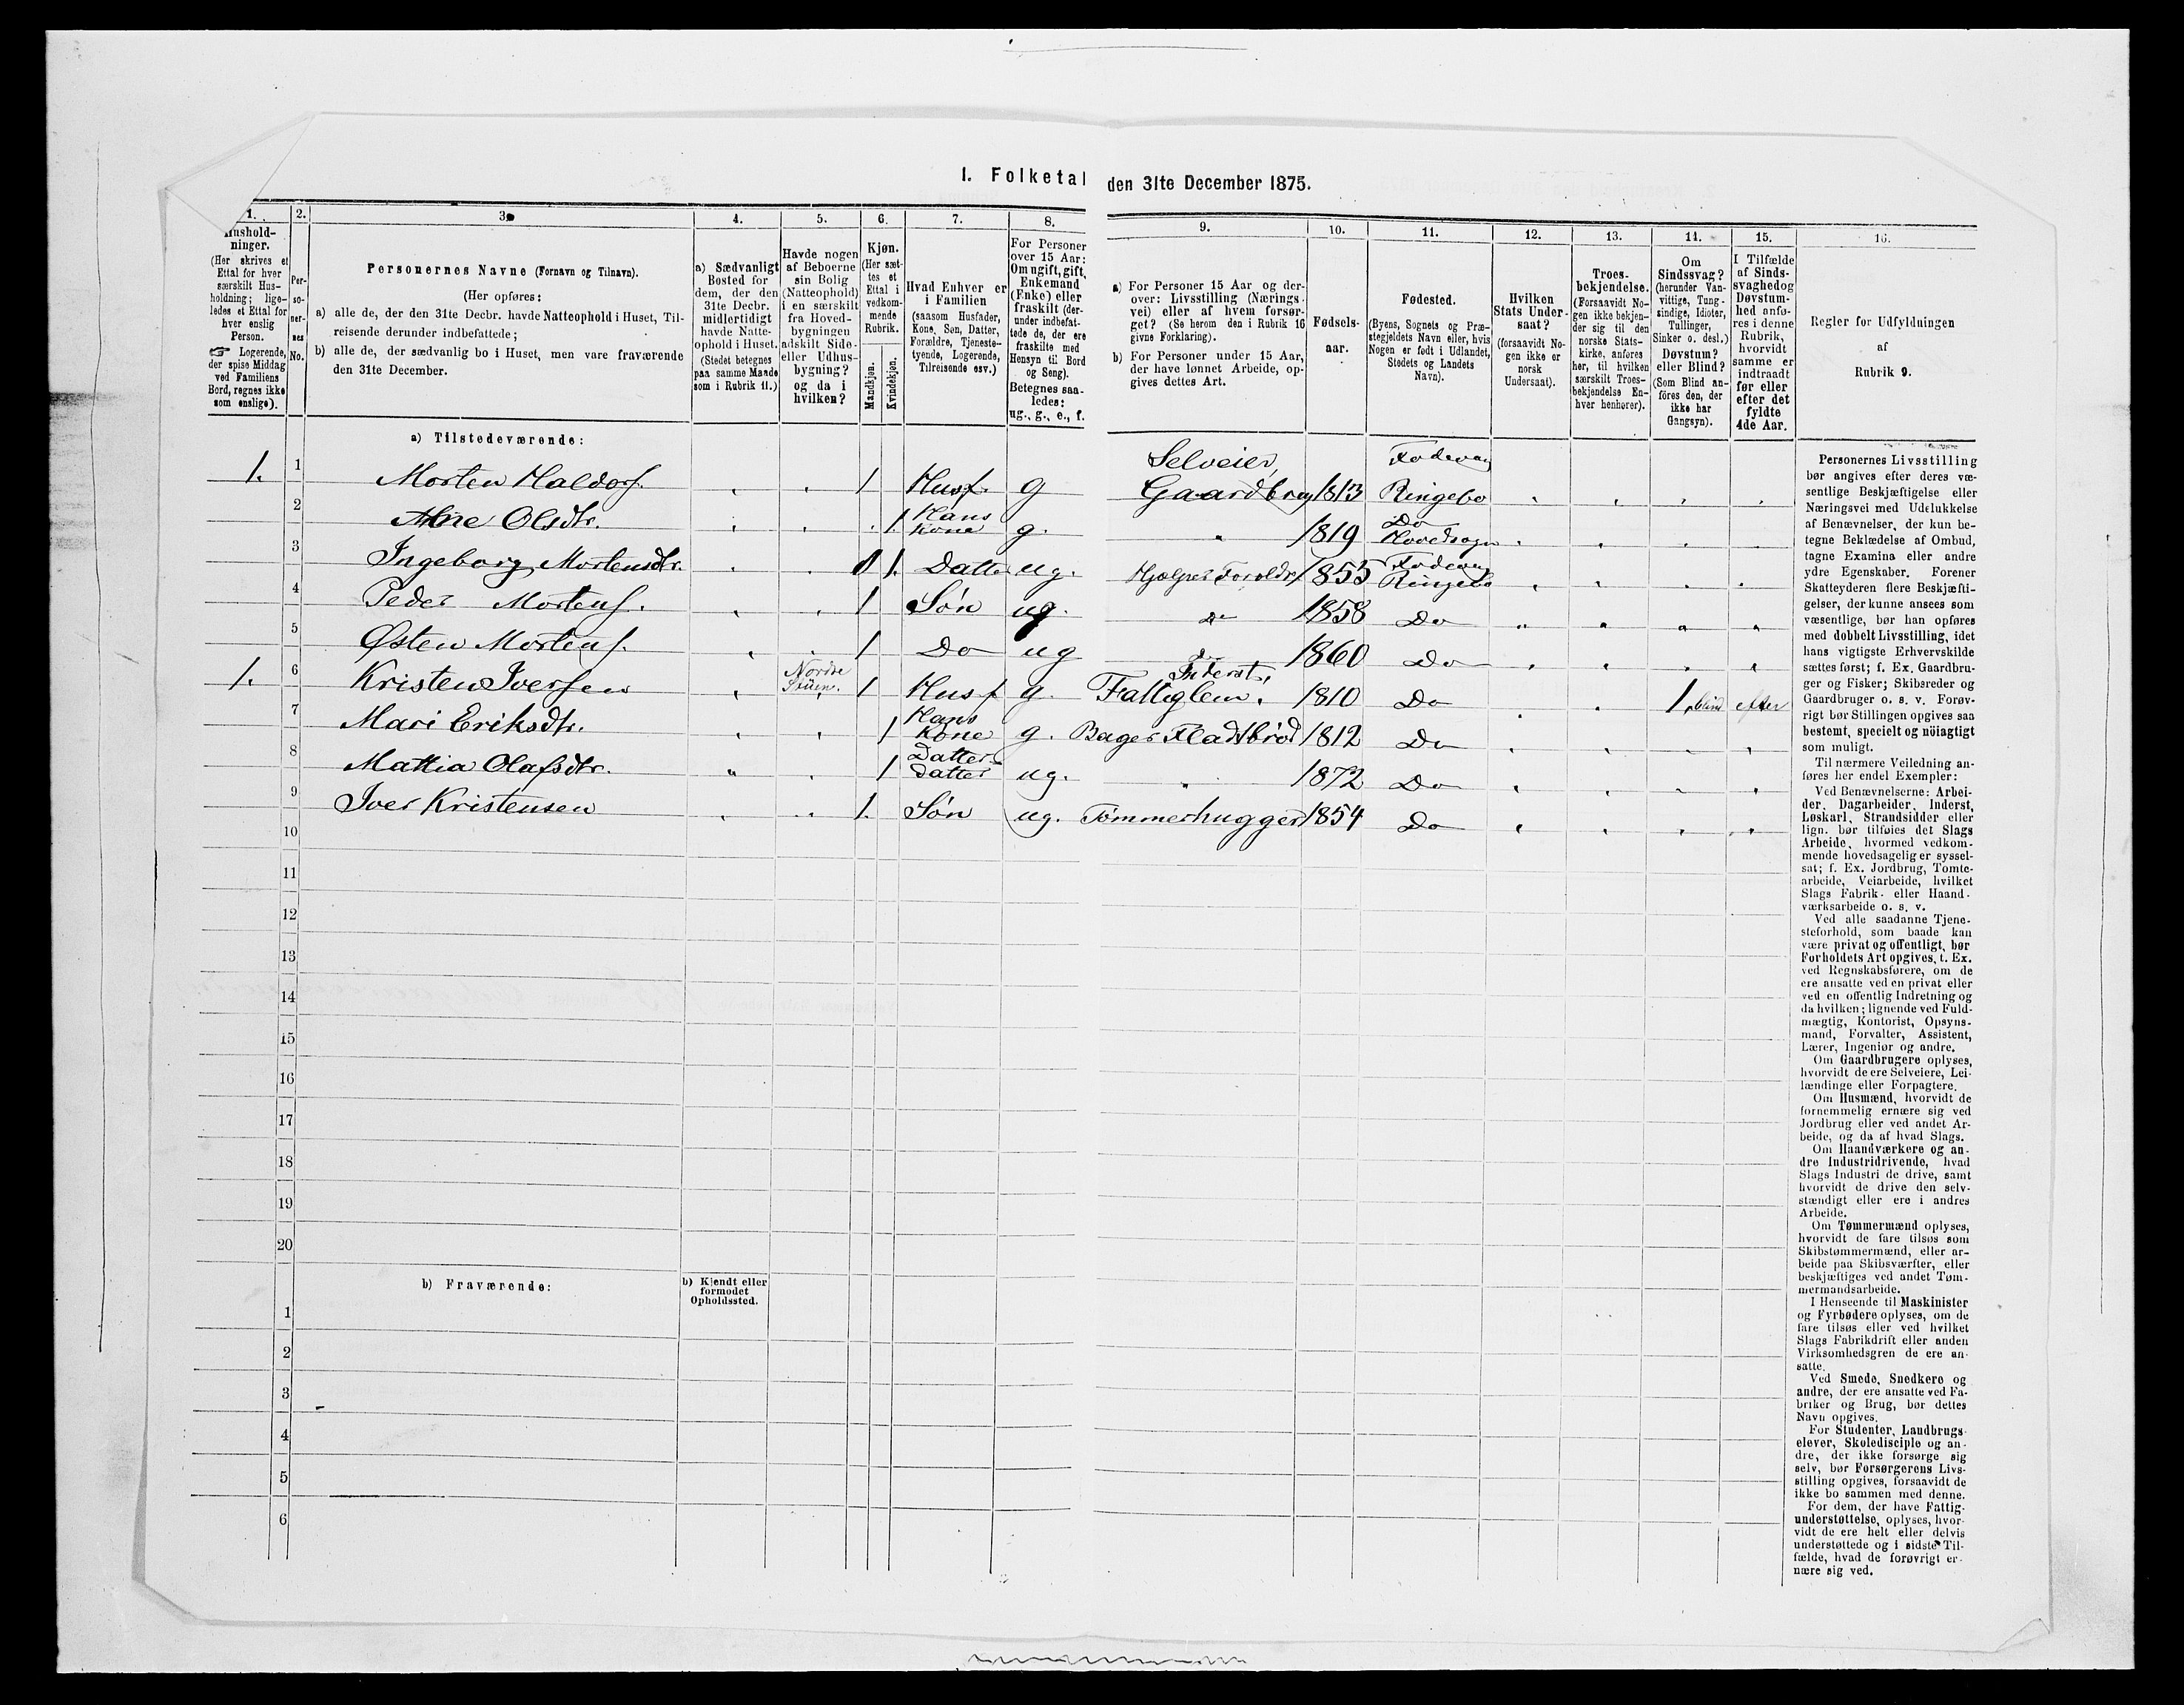 I. Folketal den 31te December 1875.
1. 2. 3. 4. 5. 6. 7. 8. 9. 10. 11. 12. 13. 14. 15. 16.
Hushold-
ninger.
(Her skrives et
Ettal for hver
særskilt Hus-
holdning; lige-
ledes et Ettal for
hver enslig
Person.
☞ Logerende,
der spise Middag
ved Familiens
Bord, regnes ikke
som enslige).
Per-
so-
ner-
nes
No.
Personernes Navne (Fornavn og Tilnavn).
(Her opføres:
a) alle de, der den 31te Decbr. havde Natteophold i Huset, Til-
reisende derunder indbefattede;
b) alle de, der sædvanlig bo i Huset, men vare fraværende
den 31te December.
a) Sædvanligt
Bosted for
dem, der den
31te Decbr.
midlertidigt
havde Natte-
ophold i Huset.
(Stedet betegnes
paa samme Maade
som i Rubrik 11.)
Havde nogen
af Beboerne
sin Bolig
(Natteophold)
i en særskilt
fra Hoved-
bygningen
adskilt Side-
eller Udhus-
bygning?
og da i
hvilken?
Kjøn.
(Her sæt-
tes et
Ettal i
vedkom-
mende
Rubrik.
Mandkjøn.
Kvindekjøn.
Hvad Enhver er
i Familien
(saasom Husfader,
Kone, Søn, Datter,
Forældre, Tjeneste-
tyende, Logerende,
Tilreisende osv.)
For Personer
over 15 Aar:
Om ugift, gift,
Enkemand
(Enke) eller
fraskilt (der-
under indbefat-
tede de, der ere
fraskilte med
Hensyn til Bord
og Seng).
Betegnes saa-
ledes:
ug., g., e., f.
a) For Personer 15 Aar og der-
over: Livsstilling (Nærings-
vei) eller af hvem forsør-
get? (Se herom den i Rubrik 16
givne Forklaring).
b) For Personer under 15 Aar,
der have lønnet Arbeide, op-
gives dettes Art.
Fødsels-
aar.
Fødested.
(Byens, Sognets og Præ-
stegjeldets Navn eller, hvis
Nogen er født i Udlandet,
Stedets og Landets
Navn).
Hvilken
Stats Under-
saat?
(forsaavidt No-
gen ikke er
norsk
Undersaat).
Troes-
bekjendelse.
(Forsaavidt No-
gen ikke bekjen-
der sig til den
norske Stats-
kirke, anføres
her, til hvilken
særskilt Troes-
bekjendelse En-
hver henhører).
Om
Sindssvag?
(herunder Van-
vittige, Tung-
sindige, Idioter,
Tullinger,
Sinker o. desl.)
Døvstum?
eller Blind?
(Som Blind an-
føres den, der
ikke har
Gangsyn).
I Tilfælde
af Sinds-
svaghed og
Døvstum-
hed anfø-
res i denne
Rubrik,
hvorvidt
samme er
indtraadt
før eller
efter det
fyldte
4de Aar.
Regler for Udfyldningen
af
Rubrik 9.
a) Tilstedeværende:
1. 1 Morten Haldors. 1 Husf. g Selveier, Gaardbrug 1813 Fodevang Ringebo
2 Ane Olsdtr. 1. Hans Kone g. 1819 Do Hovedsogn
3 Ingeborg Mortensdtr. 1. Datter ug. Hjælper Foreldre 1855 Fodevang Ringebo
4 Peder Mortens. 1 Søn ug. Do 1858 Do
5 Østen Mortens. 1 Do ug Do 1860 Do
1. 6 Kristen Iversen Nordre Stuen. 1 Husf g. Inderst, Fattiglem. 1810 Do 1. blind efter
7 Mari Eriksdtr. 1 Hans Kone g. Bager Fladbrød 1812 Do
8 Mattia Olafsdtr. 1 Datter-datter ug. 1872 Do
9 Iver Kristensen 1. Søn ug. Tømmerhugger 1854 Do
10
11
12
13
14
15
16
17
18
19
20
b) Fraværende:
b) Kjendt eller
formodet
Opholdssted.
1
2
3
4
5
6
Personernes Livsstilling
bør angives efter deres væ-
sentlige Beskjæftigelse eller
Næringsvei med Udelukkelse
af Benævnelser, der kun be-
tegne Beklædelse af Ombud,
tagne Examina eller andre
ydre Egenskaber. Forener
Skatteyderen flere Beskjæfti-
gelser, der kunne ansees som
væsentlige, bør han opføres
med dobbelt Livsstilling, idet
hans vigtigste Erhvervskilde
sættes først; f. Ex. Gaardbru-
ger og Fisker; Skibsreder og
Gaardbruger o. s. v. Forøv-
rigt bør Stillingen opgives saa
bestemt, specielt og nöiagtigt
som muligt.
Til nærmere Veiledning an-
føres her endel Exempler:
Ved Benævnelserne: Arbei-
der, Dagarbeider, Inderst,
Løskarl, Strandsidder eller
lign. bør tilføies det Slags
Arbeide, hvormed vedkom-
mende hovedsagelig er syssel-
sat; f. Ex. Jordbrug, Tomte-
arbeide, Veiarbeide, hvilket
Slags Fabrik- eller Haand-
værksarbeide o. s. v.
Ved alle saadanne Tjene-
steforhold, som baade kan
være privat og offentligt, bør
Forholdets Art opgives, t. Ex.
ved Regnskabsførere, om de
ere ansatte ved en privat eller
ved en offentlig Indretning og
da hvilken; lignende ved Fuld-
mægtig, Kontorist, Opsyns-
mand, Forvalter, Assistent,
Lærer, Ingeniør og andre.
Om Gaardbrugere oplyses,
hvorvidt de ere Selveiere, Lei-
lændinge eller Forpagtere.
Om Husmænd, hvorvidt de
fornemmelig ernære sig ved
Jordbrug eller ved andet Ar-
beide, og da af hvad Slags.
Om Haandværkere og an-
dre Industridrivende, hvad
Slags Industri de drive, samt
hvorvidt de drive den selv-
stændigt eller ere i andres
Arbeide.
Om Tømmermænd oplyses,
hvorvidt de fare tilsøs som
Skibstømmermænd, eller ar-
beide paa Skibsværfter, eller
beskjæftiges ved andet Tøm-
mermandsarbeide.
I Henseende til Maskinister
og Fyrbødere oplyses, om de
fare tilsøs eller ved hvilket
Slags Fabrikdrift eller anden
Virksomhedsgren de ere an-
satte.
Ved Smede, Snedkere og
andre, der ere ansatte ved Fa-
briker og Brug, bør dettes
Navn opgives.
For Studenter, Landbrugs-
elever, Skoledisciple og an-
dre, der ikke forsørge sig
selv, bør Forsørgerens Livs-
stilling opgives, forsaavidt de
ikke bo sammen med denne.
For dem, der have Fattig-
understøttelse, oplyses, hvor-
vidt de ere helt eller delvis
understøttede og i sidste Til-
fælde, hvad de forøvrigt er-
nære sig ved.